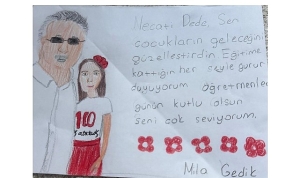 Necati Dede, Sen
çocukların geleceğini
güzelleştirdin. Eğitime
kattığın her şeyle gurur
duyuyorum öğretmenler
günün kutlu olsun
seni çok seviyorum.
Mila Gedik